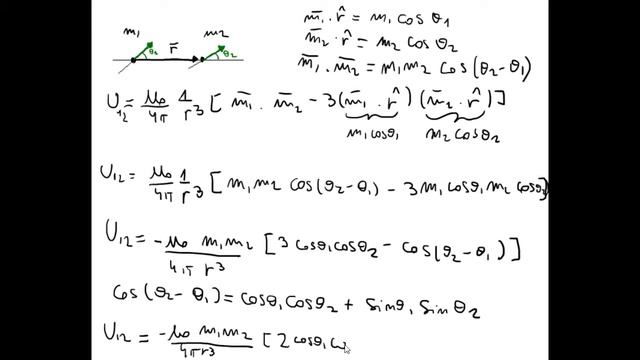 m̄₁ · r̂ = m₁ cos θ₁
m₁ m₂ m̄₂ · r̂ = m₂ cos θ₂
r̄ θ₂ θ₂ m̄₁ · m̄₂ = m₁ m₂ cos(θ₂ - θ₁)
U₁₂ = μ₀/4π 1/r³ [ m̄₁ · m̄₂ - 3(m̄₁ · r̂)(m̄₂ · r̂)]
m₁ cosθ₁ m₂ cosθ₂
U₁₂ = μ₀/4π 1/r³ [ m₁ m₂ cos(θ₂ - θ₁) - 3 m₁ cosθ₁ m₂ cosθ₂]
U₁₂ = -μ₀ m₁ m₂/4π r³ [3 cosθ₁ cosθ₂ - cos(θ₂ - θ₁)]
cos(θ₂ - θ₁) = cosθ₁ cosθ₂ + sinθ₁ sinθ₂
U₁₂ = -μ₀ m₁ m₂/4π r³ [2 cosθ₁ co